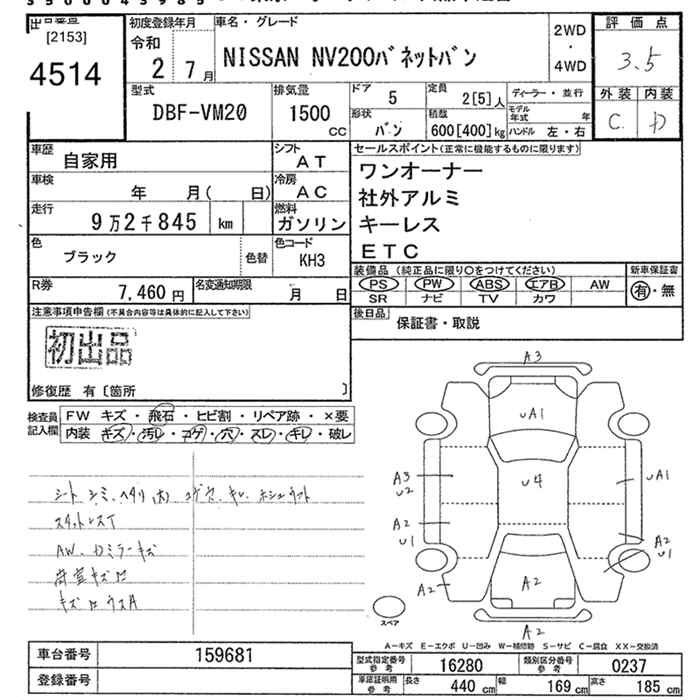 [2153]
4514
初度登録年月
令和
2 7月
車名・グレード
NISSAN NV200バネットバン
2WD
・
4WD
評価点
3.5
外装 内装
C. D
型式
DBF-VM20
排気量
1500
CC
ドア
5
形状
バン
定員
2[5]人
積載
600[400]kg
ディーラー・並行
モデル年式 年
ハンドル 左・右
車歴
自家用
シフト
AT
車検
年 月( 日)
冷房
AC
走行
9万2千845 km
燃料
ガソリン
色
ブラック
色替
色コード
KH3
R券
7,460円
名変通知期限
月 日
セールスポイント(正常に機能するものに限ります)
ワンオーナー
社外アルミ
キーレス
ETC
装備品(純正品に限り○をつけてください)
PS PW ABS エアB AW
SR ナビ TV カワ
新車保証書
有・無
後日品
保証書・取説
注意事項申告欄(不具合内容等は具体的に記入して下さい)
初出品
修復歴 有〔箇所 〕
検査員記入欄
FW キズ・飛石・ヒビ割・リペア跡・×要
内装 キズ・汚レ・コゲ・穴・スレ・キレ・破レ
シート シミ、ヘタリ(大) コゲ穴、キレ
AW、カミラーキズ
荷室キズ
A3
uA1
u4
A3
u2
A2
u1
A2
uA1
A2
u1
A2
A2
スペア
A-キズ E-エクボ U-凹み W-補修跡 S-サビ C-腐食 XX-交換済
車台番号
159681
登録番号
型式指定番号
参考
16280
類別区分番号
参考
0237
車庫証明用
参考
長さ 440cm
幅 169cm
高さ 185cm